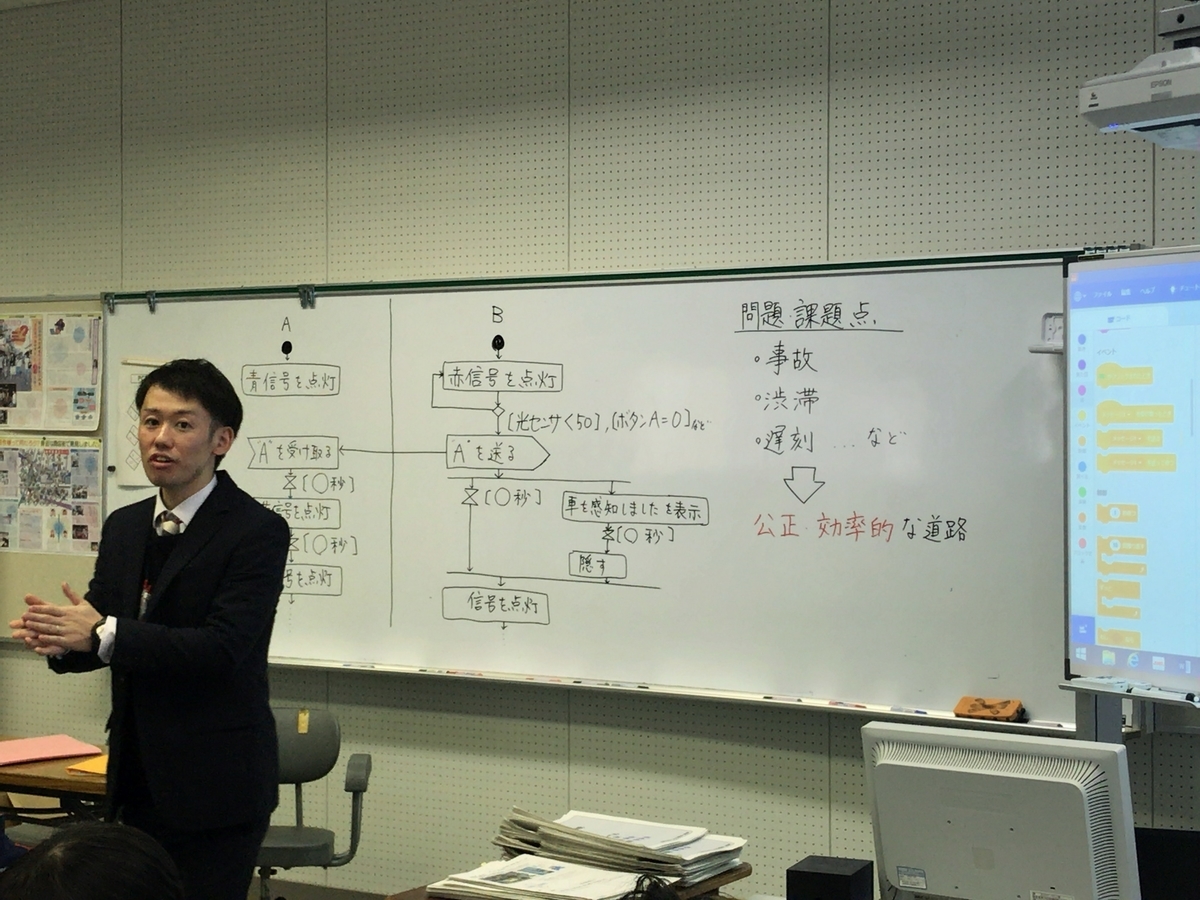 A
青信号を点灯
"A"を受け取る
[〇秒]
信号を点灯
[〇秒]
号を点灯
B
赤信号を点灯
[光センサ<50],[ボタンA=0]など
"A"を送る
[〇秒]
車を感知しましたを表示
[〇秒]
隠す
信号を点灯
問題・課題点
・事故
・渋滞
・遅刻 ....など
公正・効率的な道路
EPSON
ファイル 編集
コード
イベント